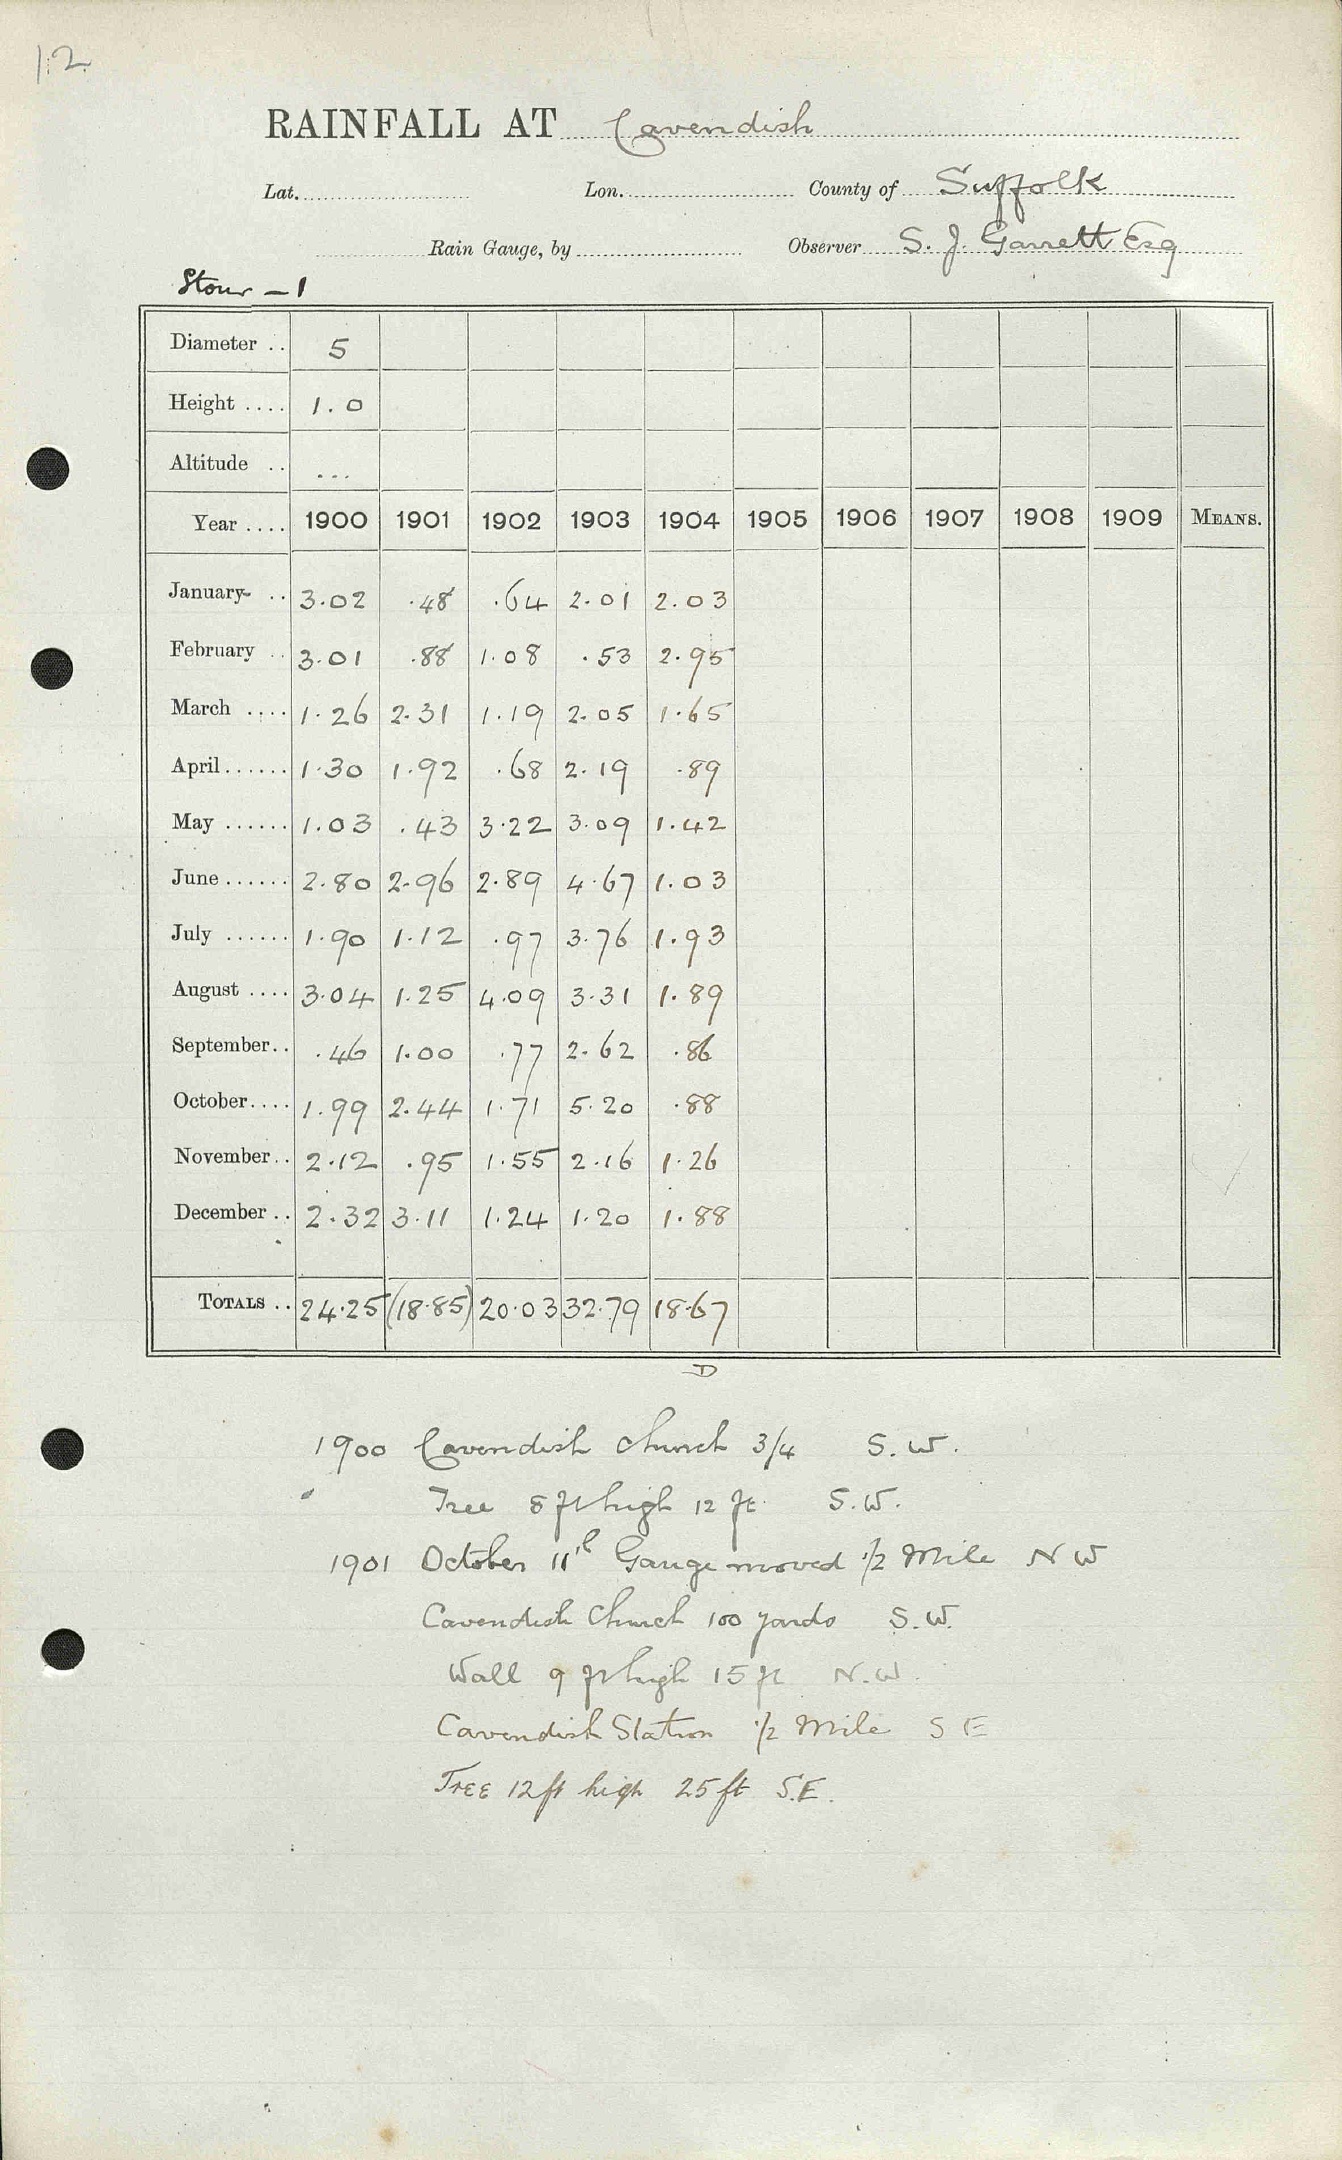 12
RAINFALL AT Cavendish
Lat. Lon. County of Suffolk
Rain Gauge, by Observer S. J. Garrett Esq
Stour - 1
Diameter .. 5
Height .... 1.0
Altitude .. ...
Year .... 1900 1901 1902 1903 1904 1905 1906 1907 1908 1909 MEANS.
January .. 3.02 .48 .64 2.01 2.03
February .. 3.01 .88 1.08 .53 2.95
March .... 1.26 2.31 1.19 2.05 1.65
April ...... 1.30 1.92 .68 2.19 .89
May ...... 1.03 .43 3.22 3.09 1.42
June ...... 2.80 2.96 2.89 4.67 1.03
July ...... 1.90 1.12 .97 3.76 1.93
August .... 3.04 1.25 4.09 3.31 1.89
September .. .46 1.00 .77 2.62 .86
October .... 1.99 2.44 1.71 5.20 .88
November .. 2.12 .95 1.55 2.16 1.26
December .. 2.32 3.11 1.24 1.20 1.88
TOTALS .. 24.25 (18.85) 20.03 32.79 18.67
D
1900 Cavendish Church 3/4 S.W.
Tree 8 ft high 12 ft S.W.
1901 October 11th Gauge moved 1/2 Mile N W
Cavendish Church 100 yards S.W.
Wall 9 ft high 15 ft N.W.
Cavendish Station 1/2 Mile S E
Tree 12 ft high 25 ft S.E.